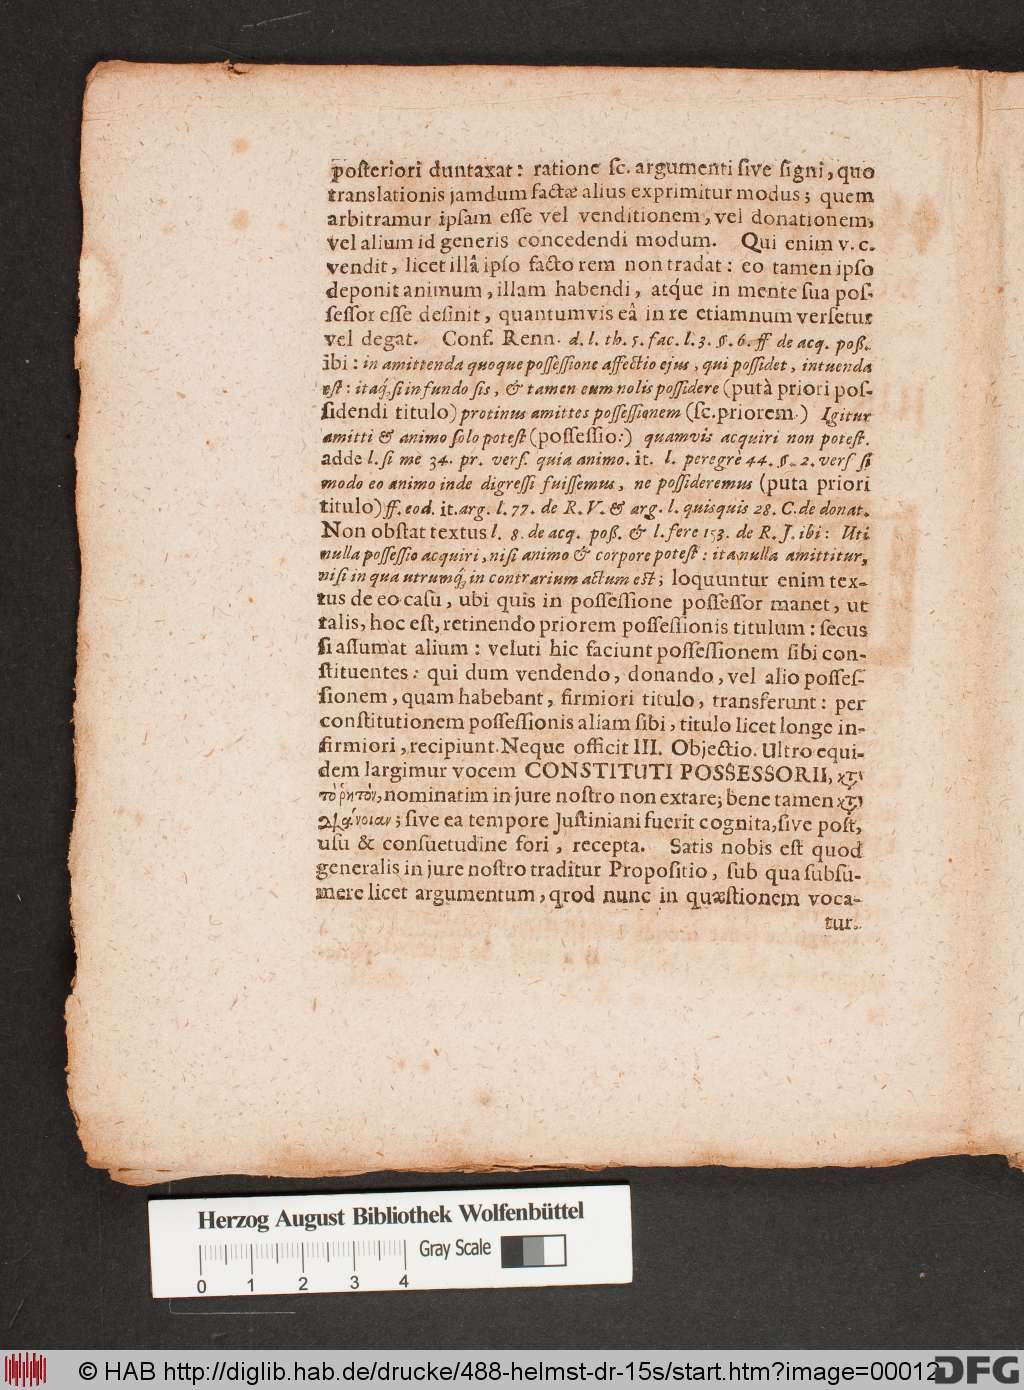 posteriori duntaxat: ratione sc. argumenti sive signi, quo
translationis jamdum factæ alius exprimitur modus; quem
arbitramur ipsam esse vel venditionem, vel donationem,
vel alium id generis concedendi modum. Qui enim v. c.
vendit, licet illâ ipso facto rem non tradat: eo tamen ipso
deponit animum, illam habendi, atq́ue in mente sua pos-
sessor esse desinit, quantumvis eâ in re etiamnum versetur
vel degat. Conf. Renn. d. l. th. 5. fac. l. 3. §. 6. ff de acq. poß.
ibi: in amittenda quoque possessione affectio ejus, qui possidet, intuenda
est: itaq́; si in fundo sis, & tamen eum nolis possidere (putà priori pos-
sidendi titulo) protinus amittes possessionem (sc. priorem.) Igitur
amitti & animo solo potest (possessio:) quamvis acquiri non potest.
adde l. si me 34. pr. vers. quia animo. it. l. peregrè 44. §. 2. vers si
modo eo animo inde digressi fuissemus, ne possideremus (puta priori
titulo) ff. eod. it. arg. l. 77. de R. V. & arg. l. quisquis 28. C. de donat.
Non obstat textus l. 8. de acq. poß. & l. fere 153. de R. J. ibi: Uti
nulla possessio acquiri, nisi animo & corpore potest: ita nulla amittitur,
nisi in qua utrumq́; in contrarium actum est; loquuntur enim tex-
tus de eo casu, ubi quis in possessione possessor manet, ut
talis, hoc est, retinendo priorem possessionis titulum: secus
si assumat alium: veluti hic faciunt possessionem sibi con-
stituentes: qui dum vendendo, donando, vel alio posses-
sionem, quam habebant, firmiori titulo, transferunt: per
constitutionem possessionis aliam sibi, titulo licet longe in-
firmiori, recipiunt. Neque officit III. Objectio. Ultro equi-
dem largimur vocem CONSTITUTI POSSESSORII, κατὰ
τὸ ῥητὸν, nominatim in jure nostro non extare; bene tamen κατὰ
διάνοιαν; sive ea tempore Justiniani fuerit cognita, sive post,
usu & consuetudine fori, recepta. Satis nobis est quod
generalis in jure nostro traditur Propositio, sub qua subsu-
mere licet argumentum, qrod nunc in quæstionem voca-
tur.
Herzog August Bibliothek Wolfenbüttel
Gray Scale
0 1 2 3 4
© HAB http://diglib.hab.de/drucke/488-helmst-dr-15s/start.htm?image=00012
DFG